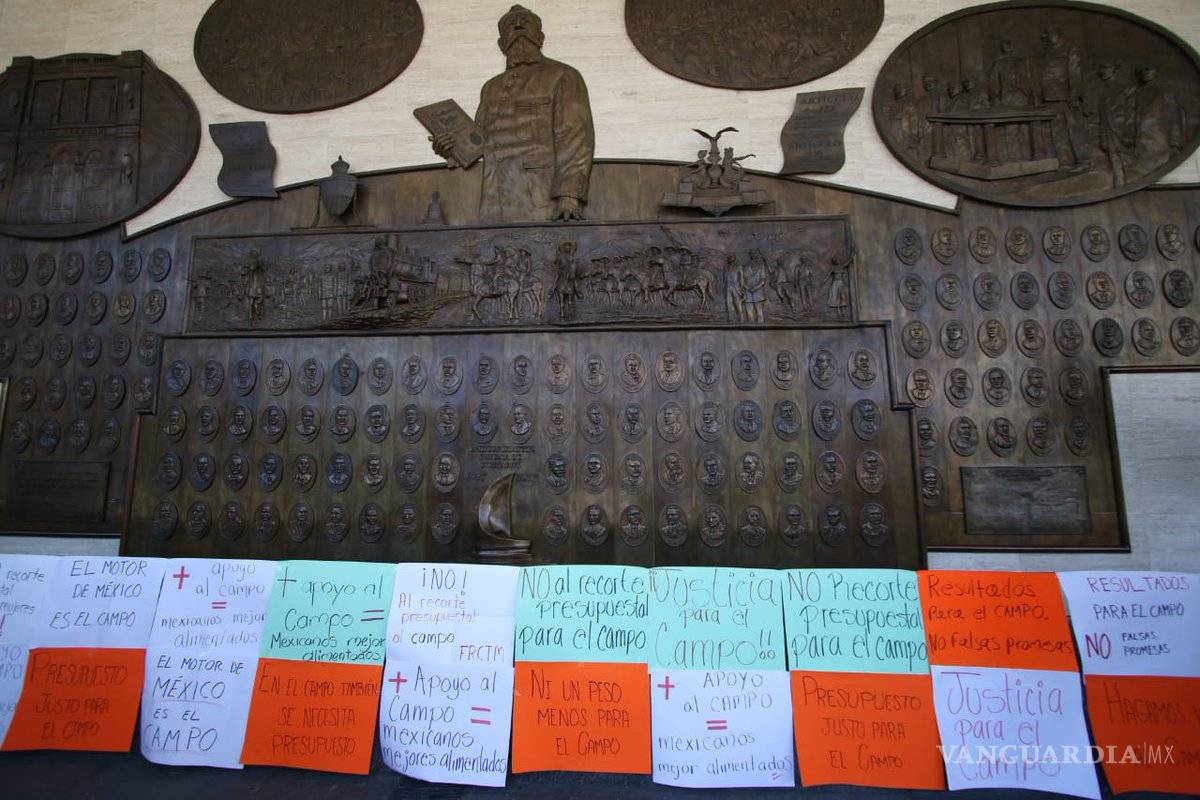 ARTICULO
123
ARTICULO
l recorte
presupuestal
mujeres
EL MOTOR
DE MÉXICO
ES EL CAMPO
PRESUPUESTO
JUSTO PARA
EL CAMPO
+ apoyo
al campo
=
mexicanos mejor
alimentados
EL MOTOR DE
MÉXICO
ES EL
CAMPO
+ apoyo al
Campo =
Mexicanos mejor
alimentados
EN EL CAMPO TAMBIÉN
SE NECESITA
PRESUPUESTO
¡NO!
Al recorte
presupuestal
al campo
FRCTM
+ Apoyo al
Campo =
mexicanos
mejores alimentados
NO al recorte
presupuestal
para el campo
NI UN PESO
MENOS PARA
EL CAMPO
Justicia
para el
Campo!!
+ APOYO
al CAMPO
=
mexicanos
mejor alimentados
NO Recorte
Presupuestal
para el campo
PRESUPUESTO
JUSTO PARA
EL CAMPO
Resultados
Para el CAMPO.
No falsas promesas
Justicia
para el
Campo
RESULTADOS
PARA EL CAMPO
NO FALSAS
PROMESAS
HAGAMOS
VANGUARDIA|MX